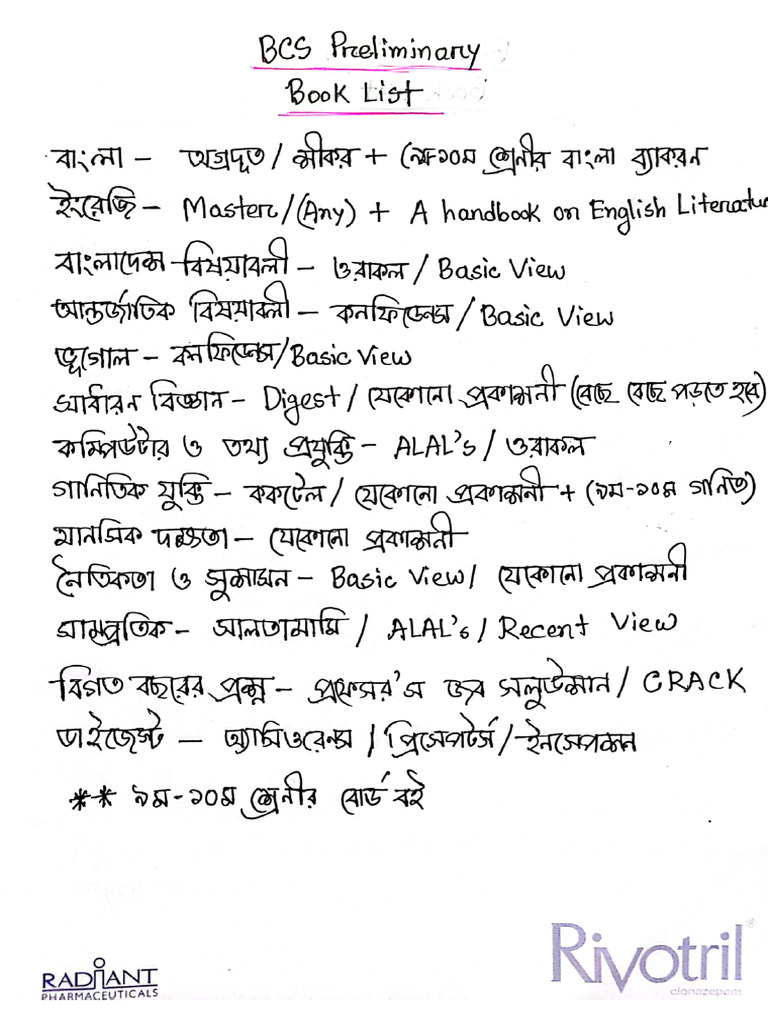 BCS Preliminary
Book List
বাংলা - অগ্রদূত / শীকর + (৯ম-১০ম শ্রেনীর বাংলা ব্যাকরন
ইংরেজি - Master/(Any) + A handbook on English Literatur
বাংলাদেশ বিষয়াবলী - ওরাকল / Basic View
আন্তর্জাতিক বিষয়াবলী - কনফিডেন্স / Basic View
ভূগোল - কনফিডেন্স/Basic View
সাধারন বিজ্ঞান - Digest / যেকোনো প্রকাশনী (বেছে বেছে পড়তে হবে)
কম্পিউটার ও তথ্য প্রযুক্তি - ALAL's / ওরাকল
গানিতিক যুক্তি - ককটেল / যেকোনো প্রকাশনী + (৯ম-১০ম গনিত)
মানসিক দক্ষতা - যেকোনো প্রকাশনী
নৈতিকতা ও সুশাসন - Basic View/ যেকোনো প্রকাশনী
সাম্প্রতিক - আলতামামি / ALAL's / Recent View
বিগত বছরের প্রশ্ন - প্রফেসর'স জব সলুউশান / CRACK
ডাইজেস্ট - অ্যাসিওরেন্স / প্রিসেপটর্স / ইনসেপশন
** ৯ম-১০ম শ্রেনীর বোর্ড বই
RADIANT
PHARMACEUTICALS
Rivotril
clonazepam